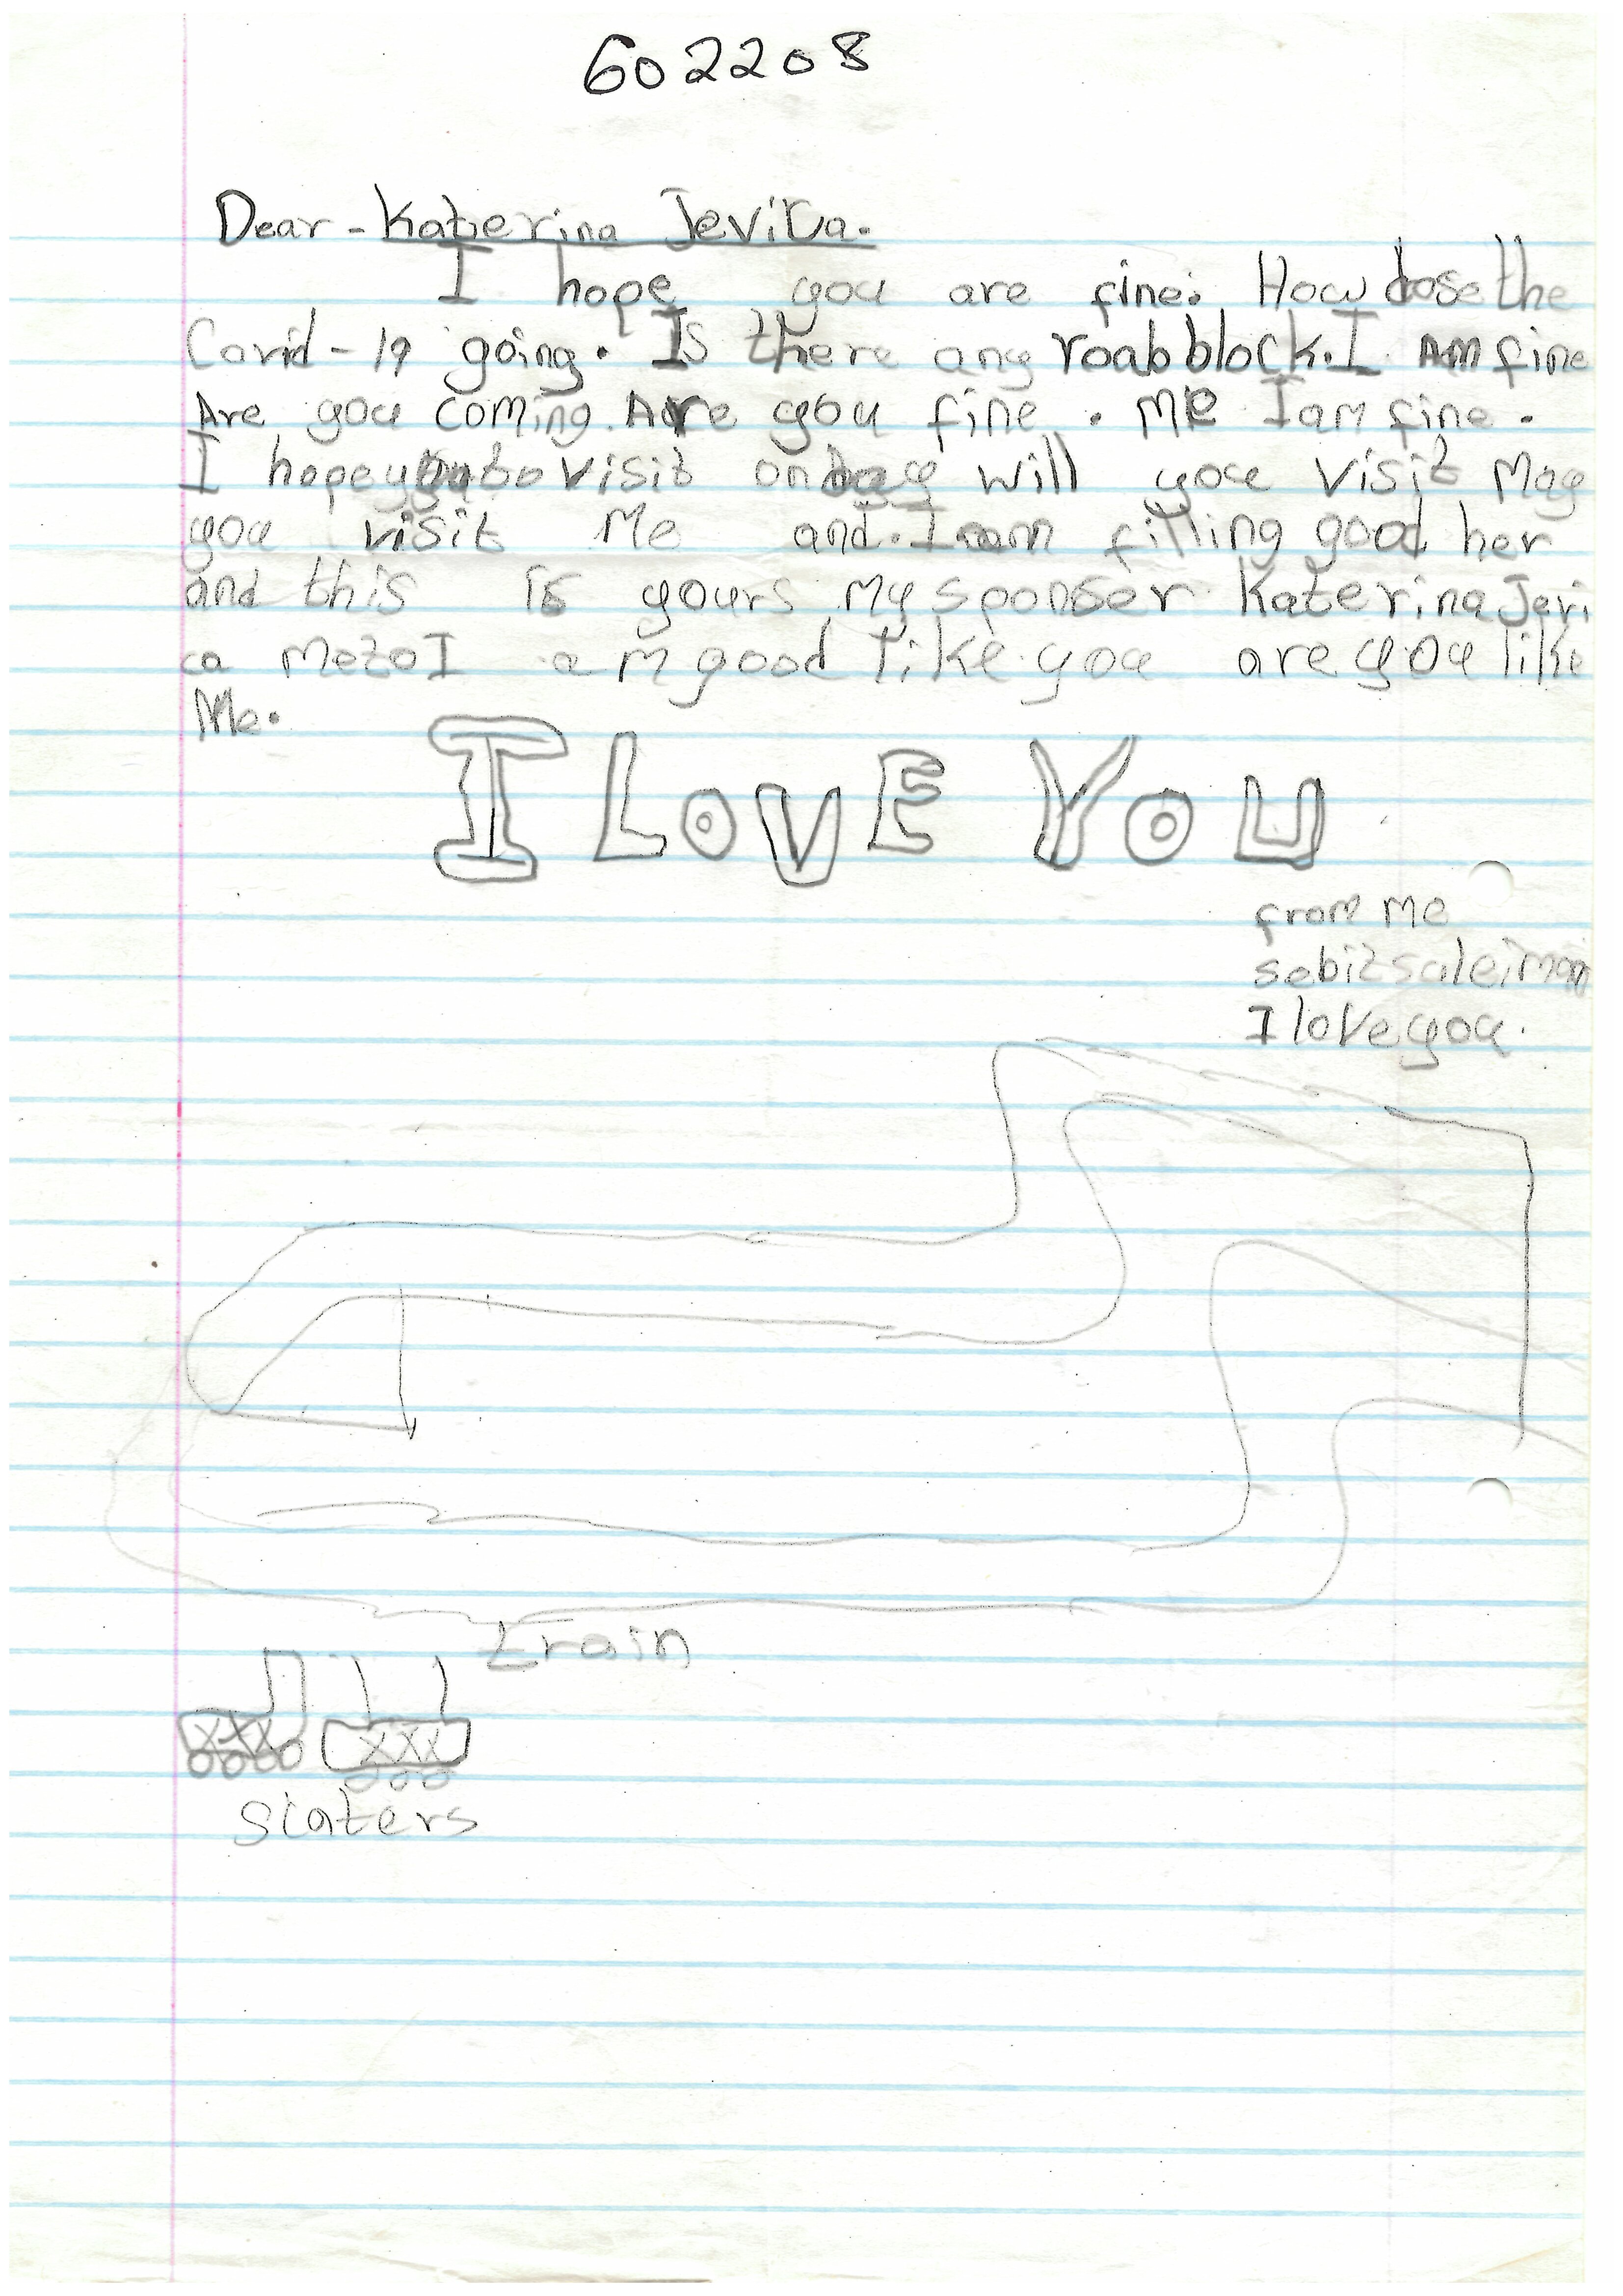 602208
Dear - Katerina Jevica.
I hope you are fine. How dose the
Covid-19 going. Is there any roab block. I Am fine
Are you coming. Are you fine. Me I am fine.
I hope you to visit on day will you visit May
you visit Me and. I am filling good her
and this is yours My sponser Katerina Jevi
ca Me to I am good like you are you like
Me.
I LOVE YOU
from Me
I love you.
train